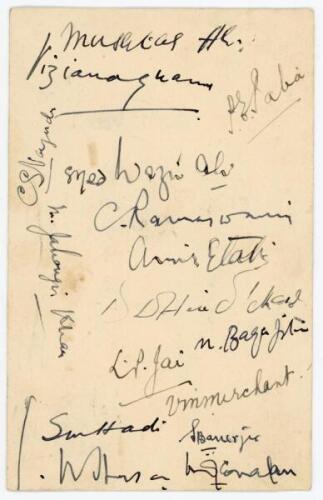 Mushtaq Ali
Vizianagram
P. E. Palia
C. S. Nayudu
Syed Wazir Ali
M. Jahangir Khan
C. Ramaswami
Amir Elahi
D. D. Hindlekar
M. Baqa Jilani
L. P. Jai
V. M. Merchant
S M Hadi
S Banerjee
M. J. Gopalan